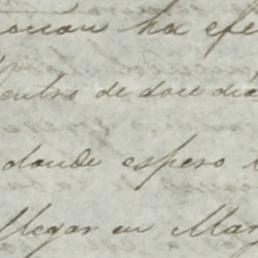 ha efe
dentro de doce dia
donde espero
llegar en Mar